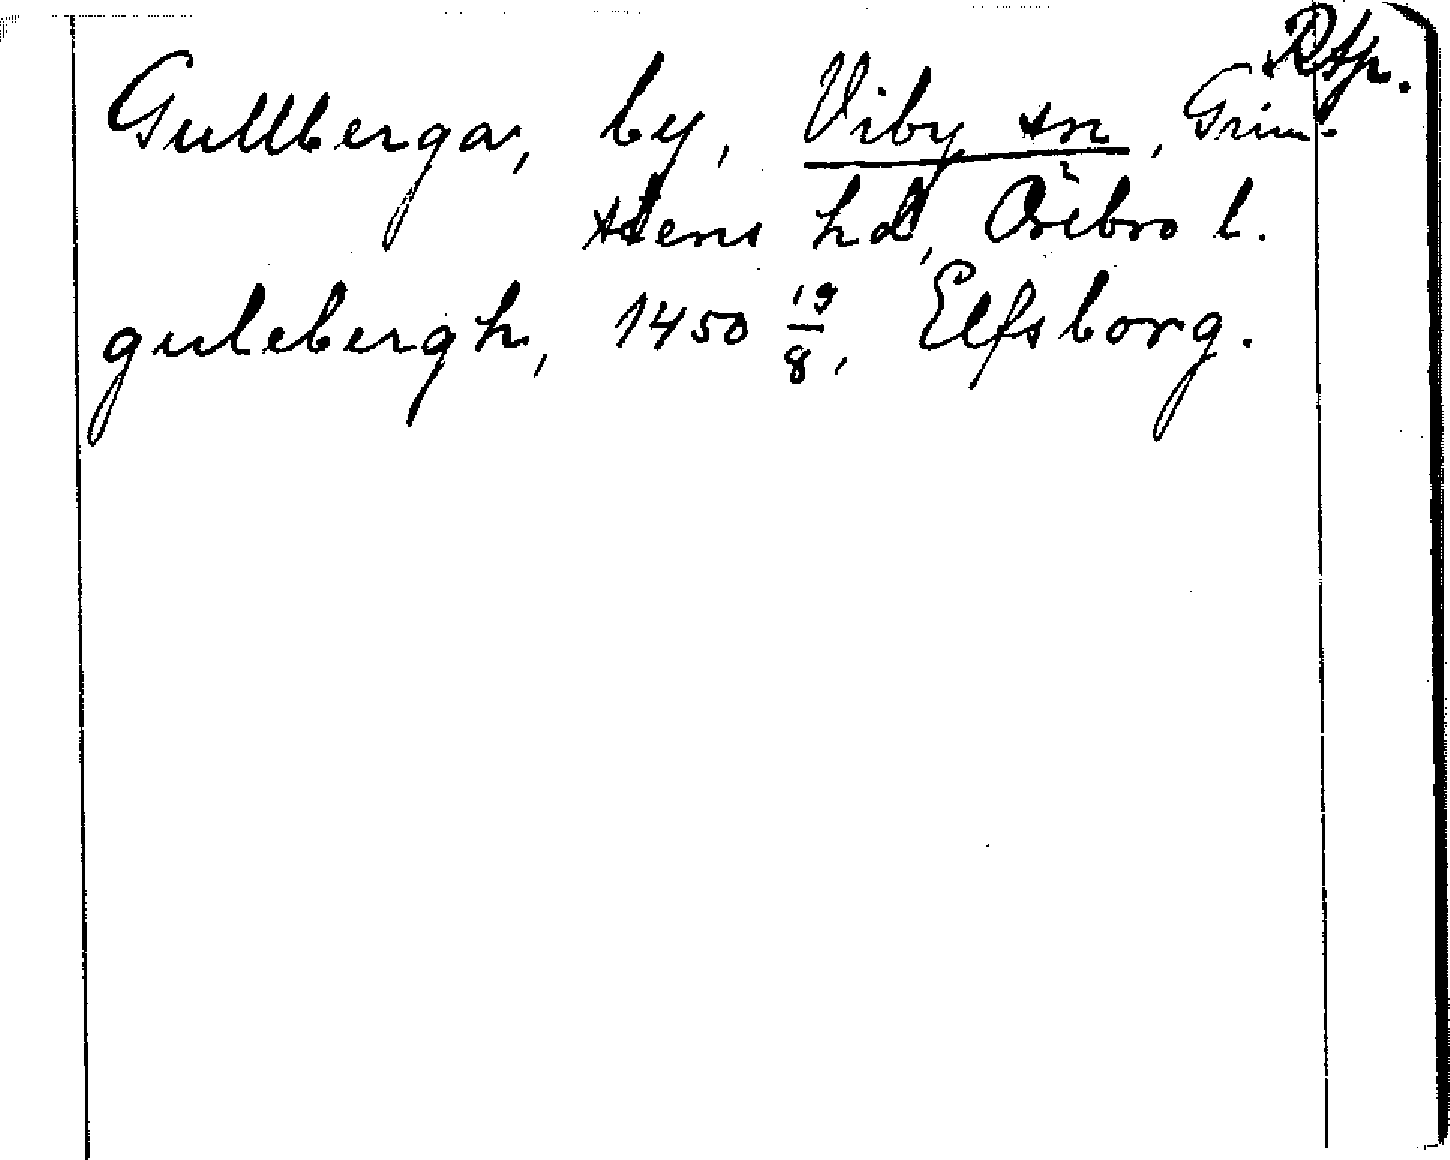 RAp.
Gullberga, by, Viby sn, Grim-
stens hd, Örebro l.
gulebergh, 1450 19/8, Elfsborg.